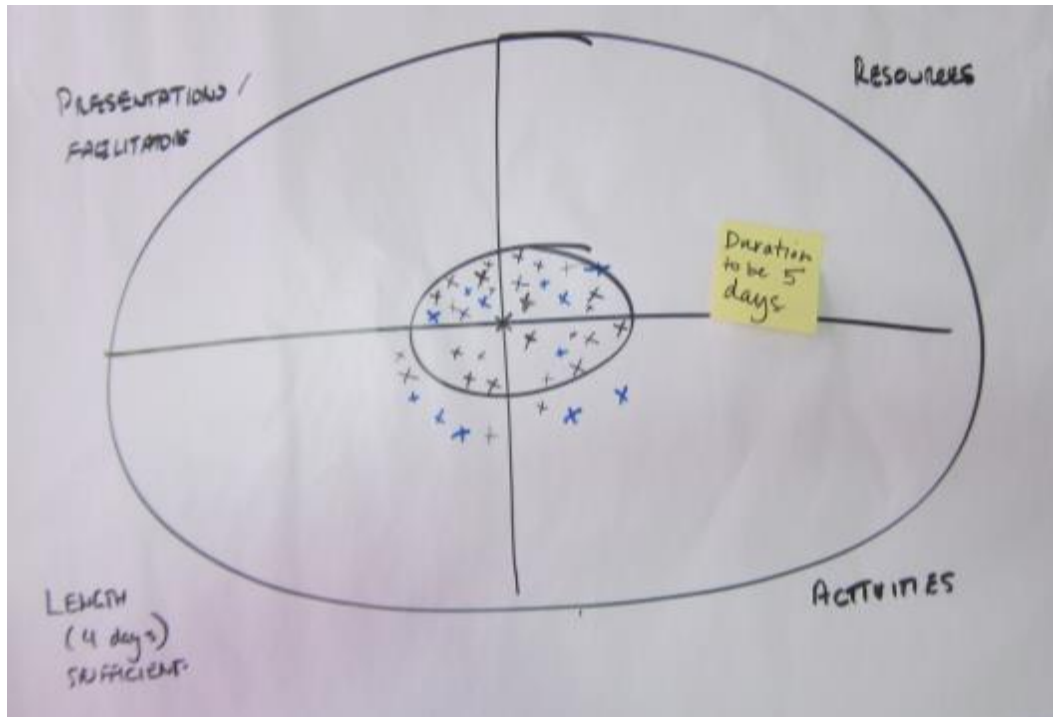 PRESENTATIONS/
FACILITATORS
RESOURCES
Duration
to be 5
days
LENGTH
(4 days)
SUFFICIENT.
ACTIVITIES